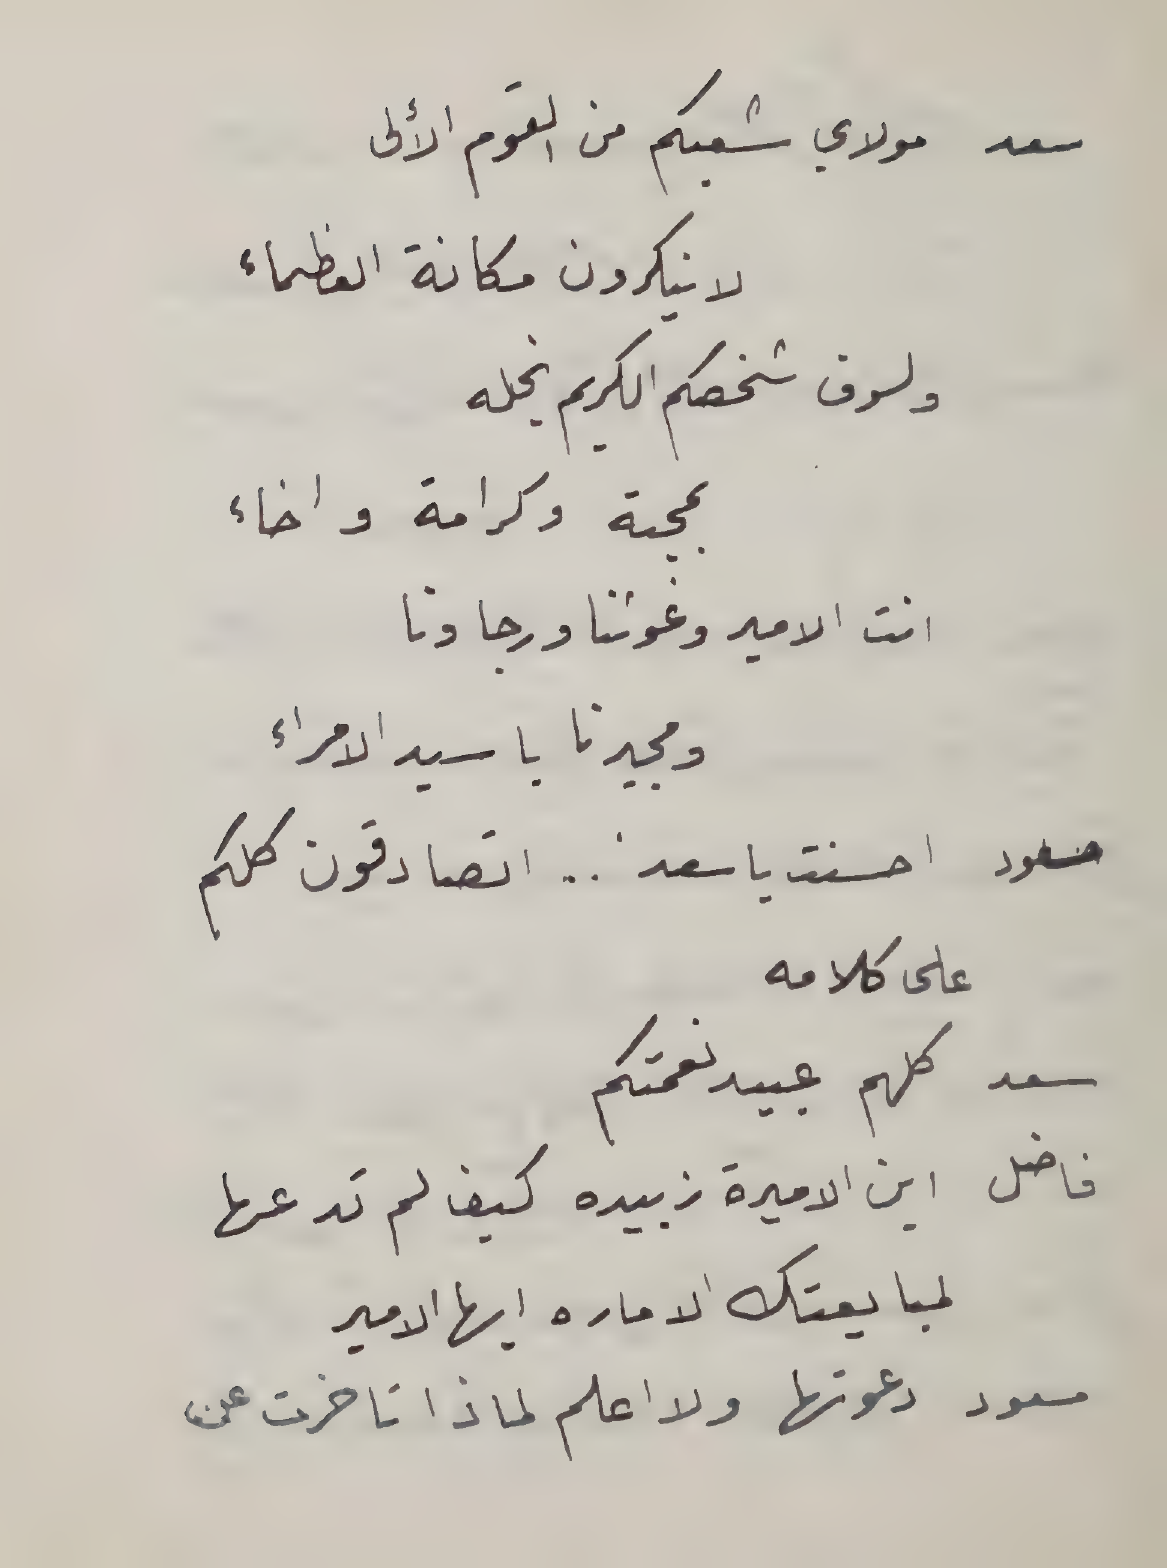 سعد مولاي شعبكم من القوم الألى
لا ينكرون مكانة العظماء
ولسوف شخصكم الكريم نجله
بمحبة وكرامة واخاء
انت الامير وغوثنا ورجاونا
ومجيرنا يا سيد الامراء
مسعود احسنت يا سعد .. اتصادقون كلكم
على كلامه
سعد كلهم عبيد نعمتكم
فاضل اين الاميرة زبيده كيف لم تدعها
لمبايعتك الاماره ايها الامير
مسعود دعوتها ولا اعلم لماذا تاخرت عن